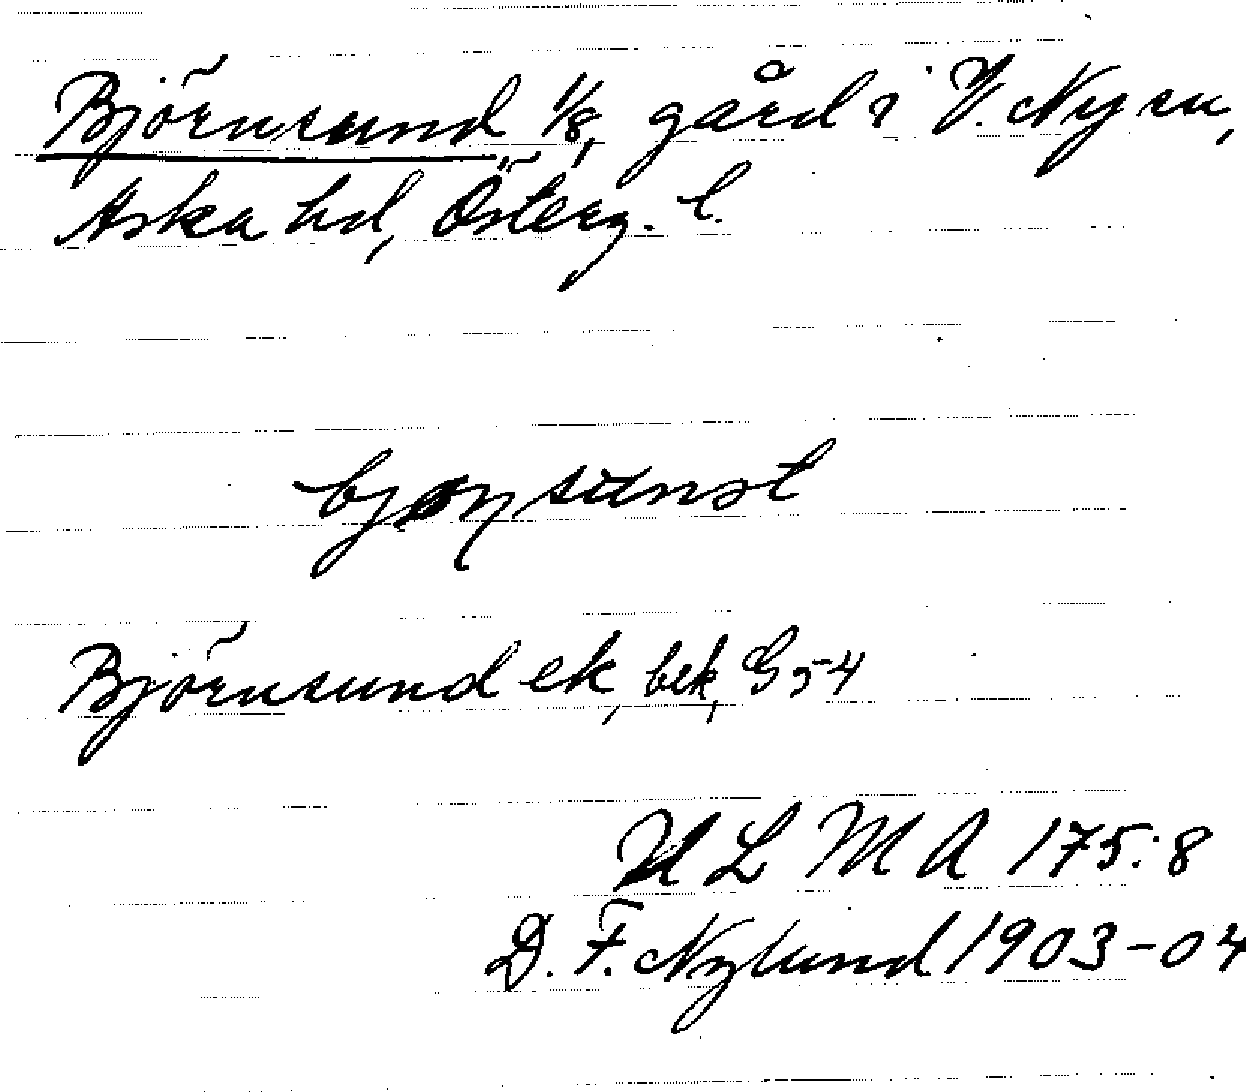 Björnsund 1/8, gård i V. Ny sn,
Aska hd, Österg. l.
Björnsund ek, bek, G 54
ULMA 175:8
D. F. Nylund 1903-04